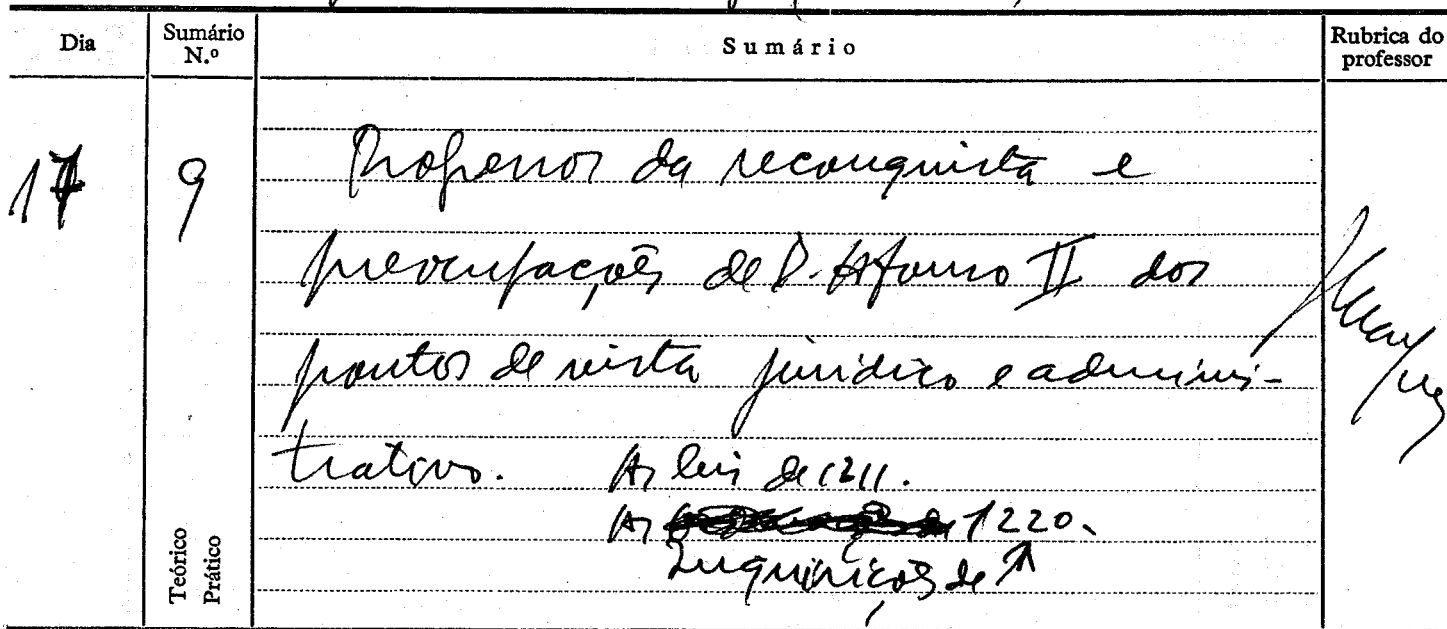 Dia
Sumário N.º
Sumário
Rubrica do professor
17
9
Progressos da reconquista e
preocupações de D. Afonso II dos
pontos de vista jurídico e adminis-
trativo. As leis de 1211.
As 1220.
Inquirições de ↑
Teórico
Prático